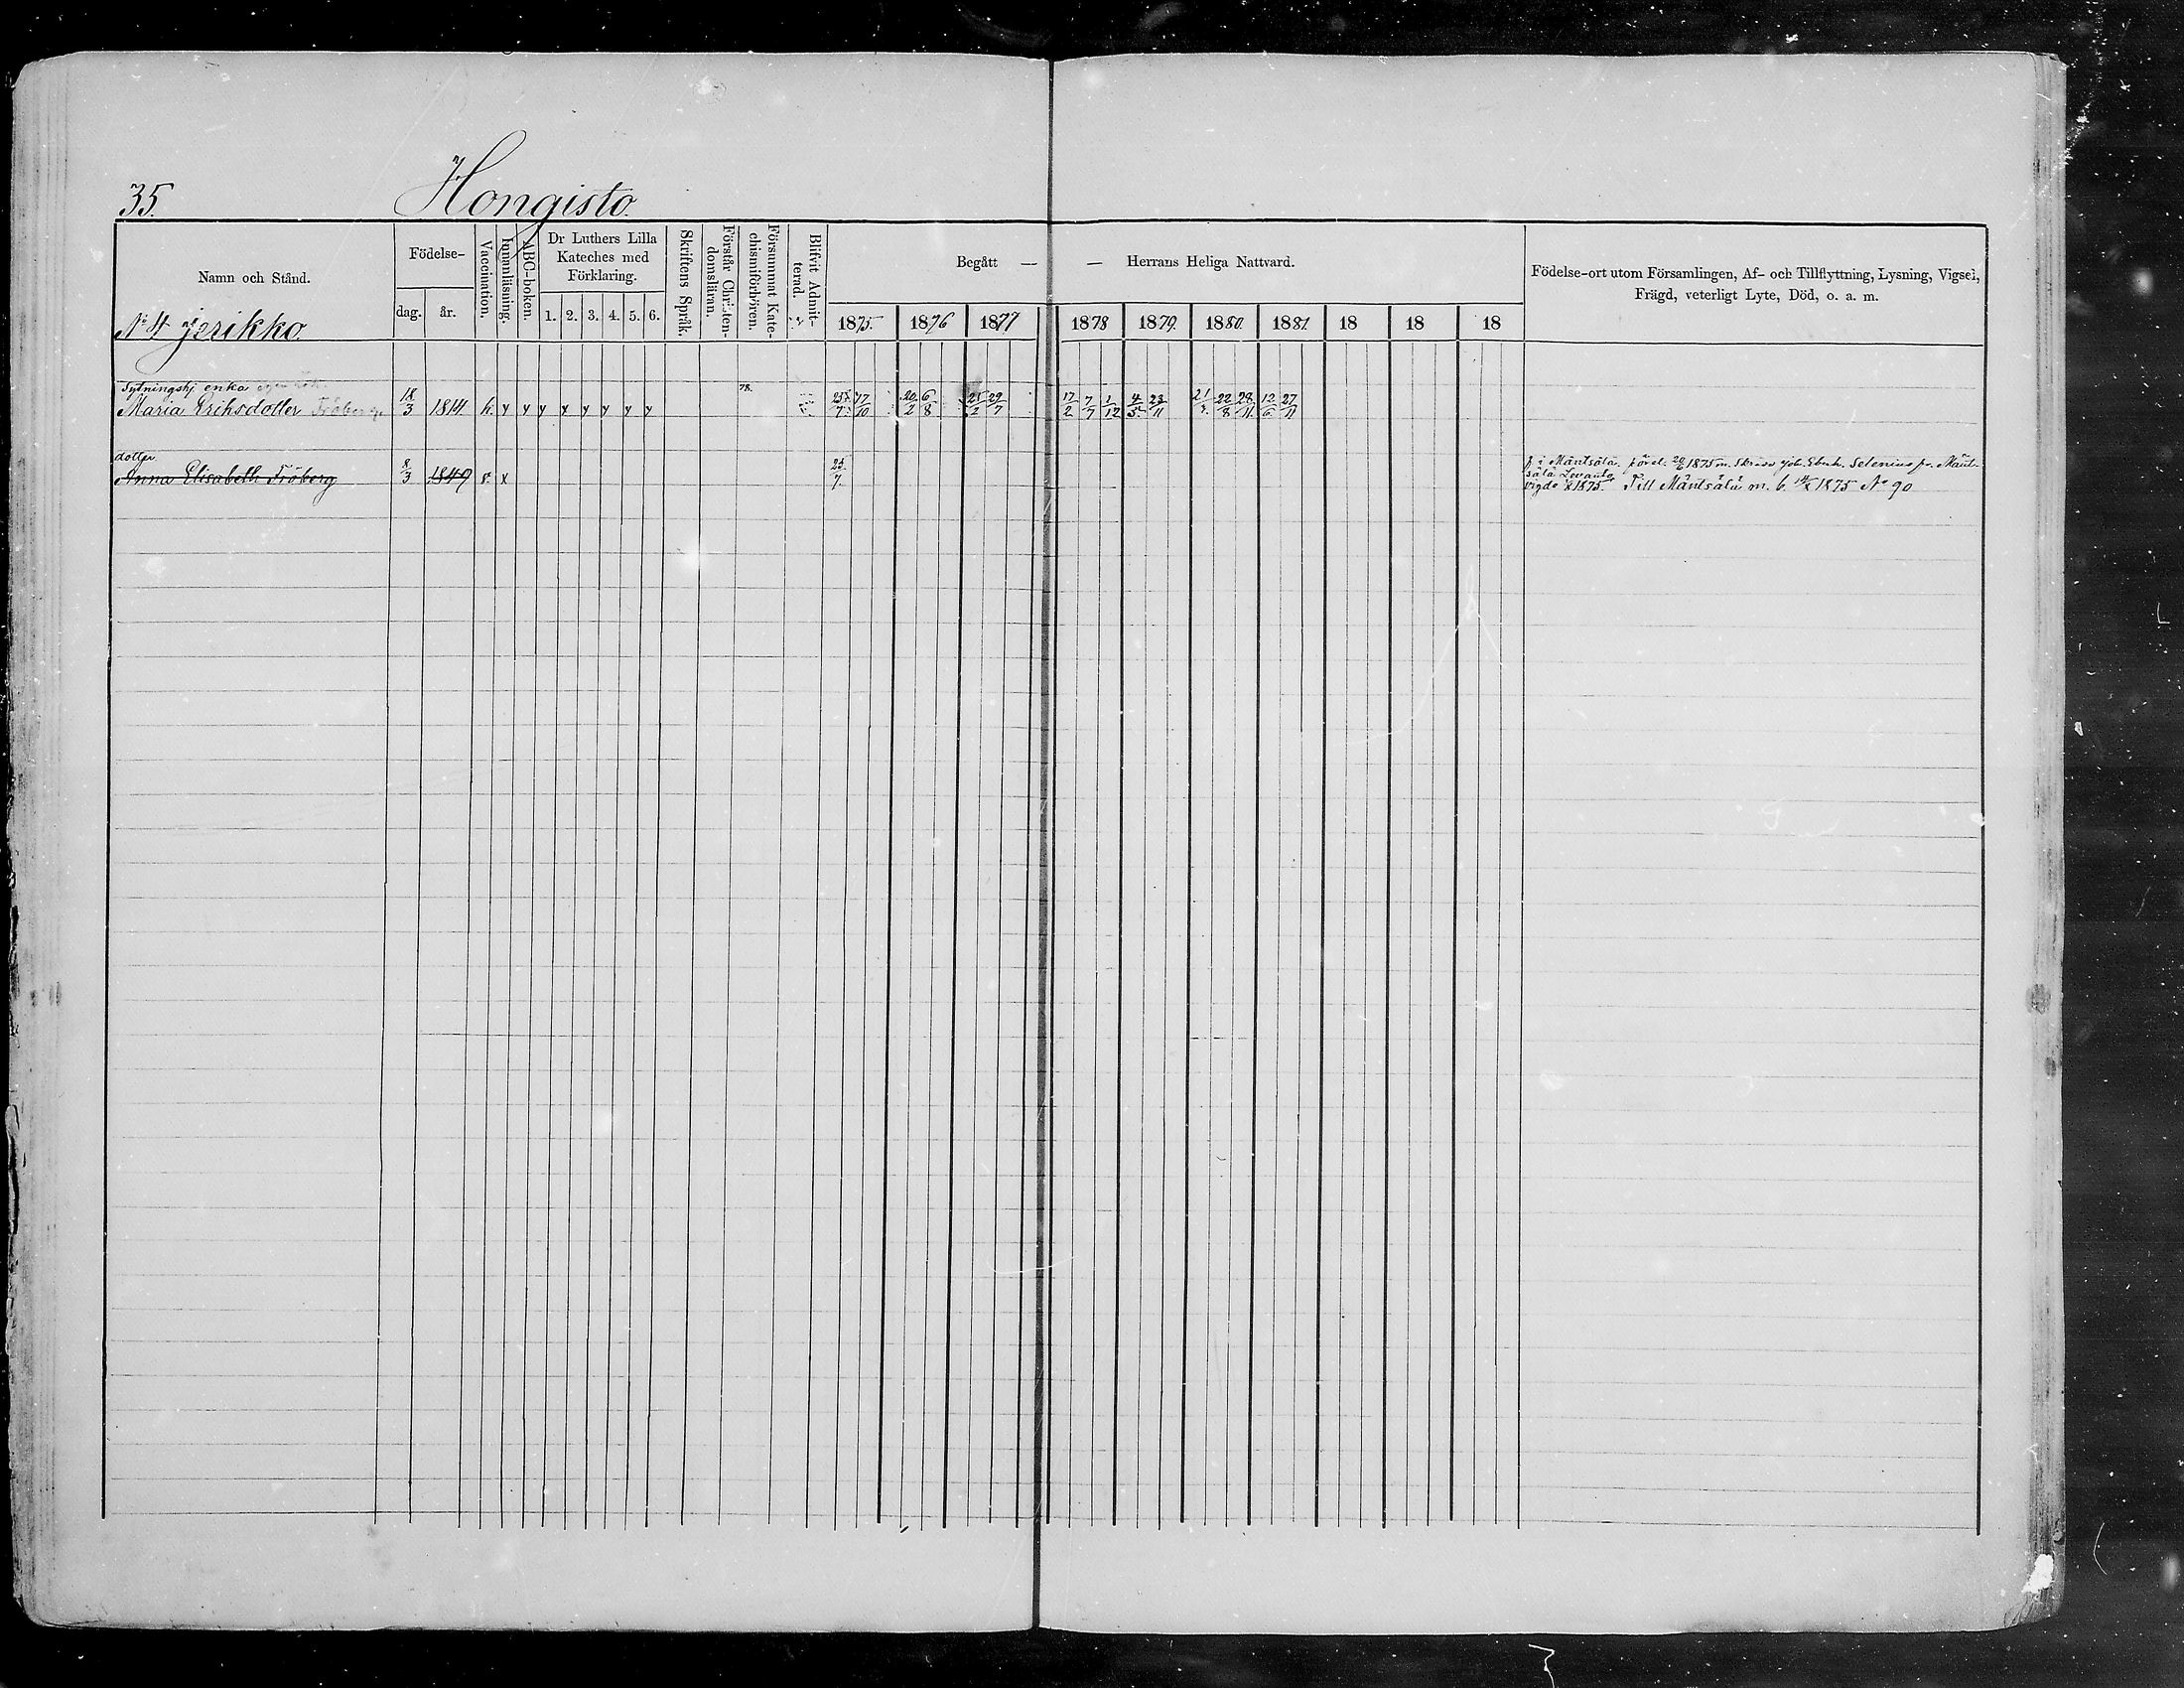 35. Hongisto.
Namn och Stånd.
No 4 Jerikko.
Födelse-
dag. år.
Vaccination.
Innanläsning.
ABC-boken.
Dr Luthers Lilla
Kateches med
Förklaring.
1. 2. 3. 4. 5. 6.
Skriftens Språk.
Förstår Christen-
domsläran.
Försummat Kate-
chismiförhören.
Blifvit Admit-
terad.
Begått — — Herrans Heliga Nattvard.
1875. 1876 1877 1878 1879. 1880. 1881. 18 18 18
Födelse-ort utom Församlingen, Af- och Tillflyttning, Lysning, Vigsel,
Frägd, veterligt Lyte, Död, o. a. m.
Sytningshj enka
Maria Eriksdotter Fröberg 18/3 1814 h. y y y x y y y y 78. 25/7 17/10 20/2 6/8 25/2 29/7 17/2 7/7 1/12 4/5 23/11 21/ 22/8 28/11 12/6 27/11
dotter
Anna Elisabeth Fröberg 8/3 1849 v. x 25/7
f. i Mäntsälä. 1875 m. Selenius fr. Mänt-
sälä
vigde 1875. Till Mäntsälä m. b. 1875 No 90